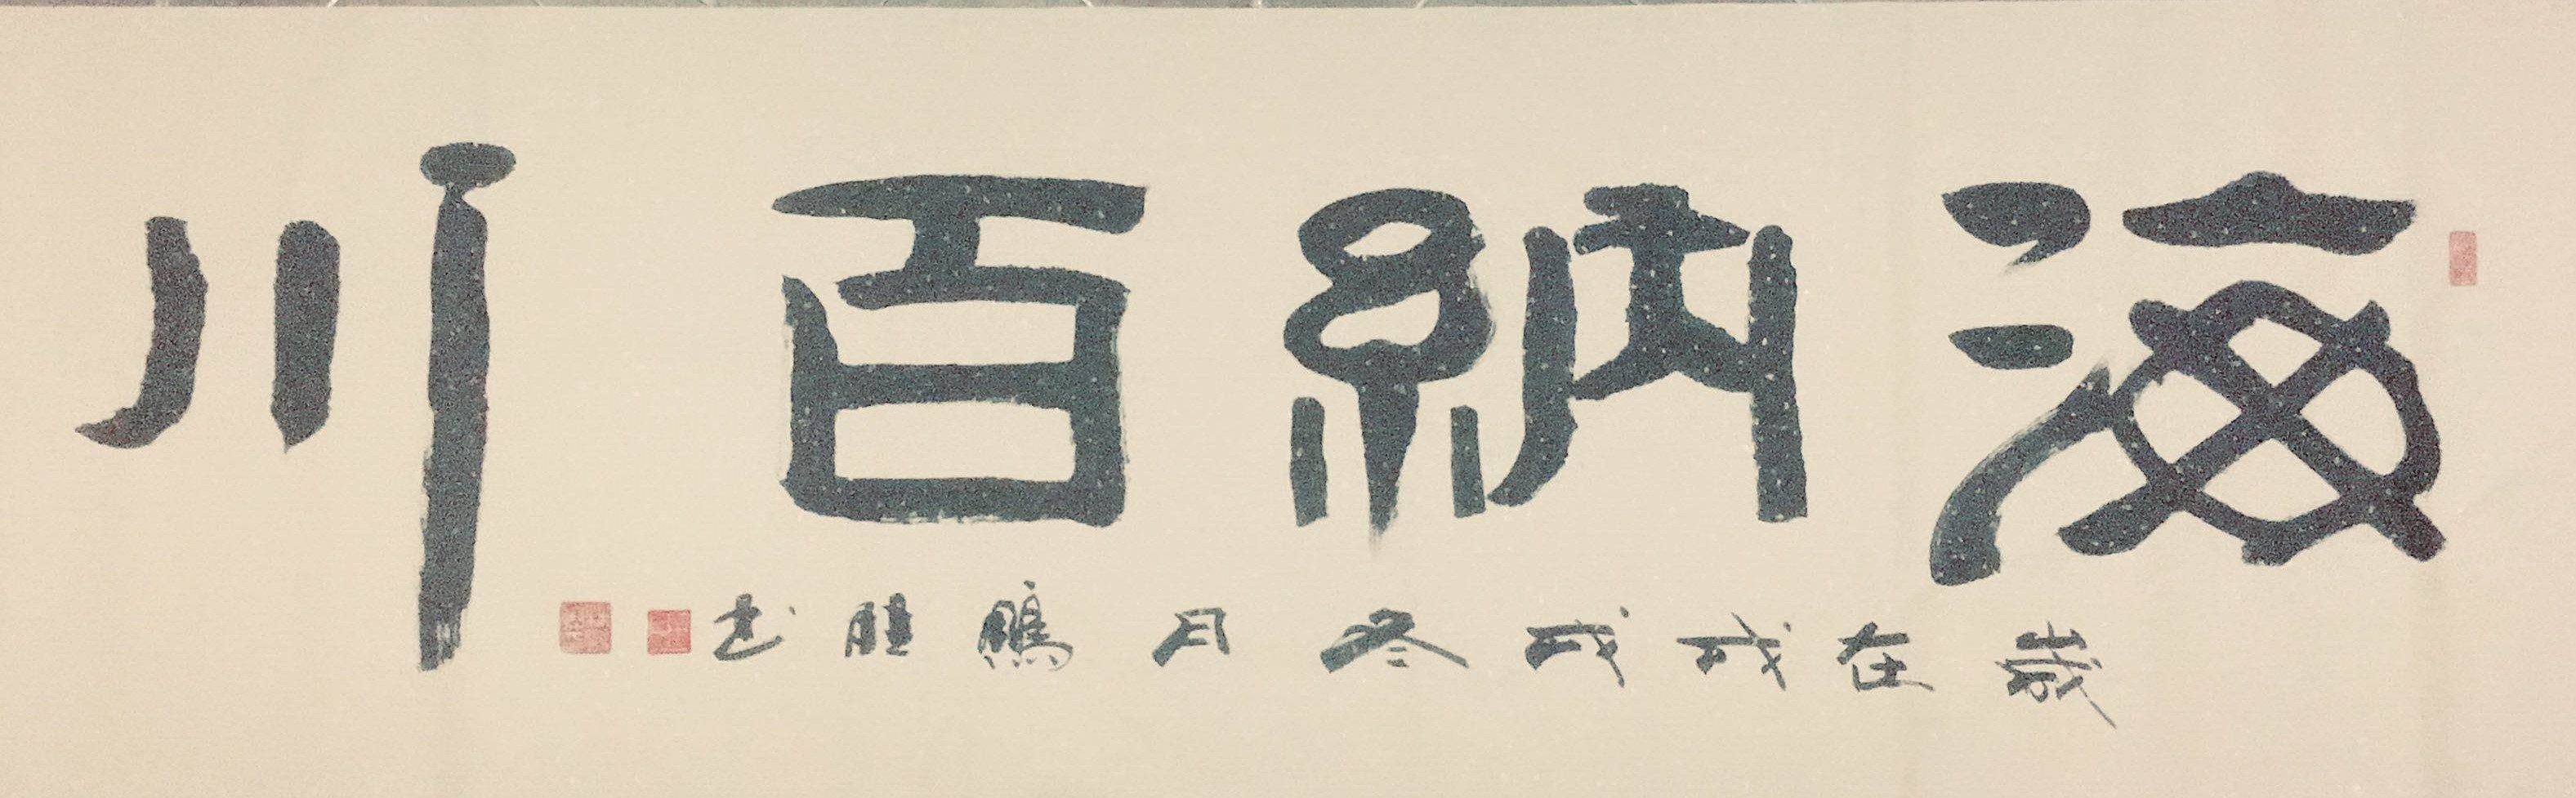 海納百川
歲在戊戌冬月鵬程书